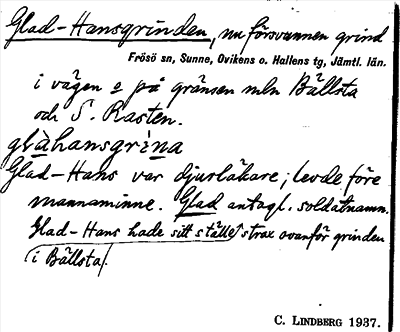 Glad-Hansgrinden, nu försvunnen grind
Frösö sn, Sunne, Ovikens o. Hallens tg, Jämtl. län.
i vägen på gränsen mln Bällsta
och S. Rasten.
glàhansgrìna
Glad-Hans var djurläkare; levde före
mannaminne. Glad antagl. soldatnamn.
Glad-Hans hade sitt ställe strax ovanför grinden
i Bällsta.
C. LINDBERG 1937.